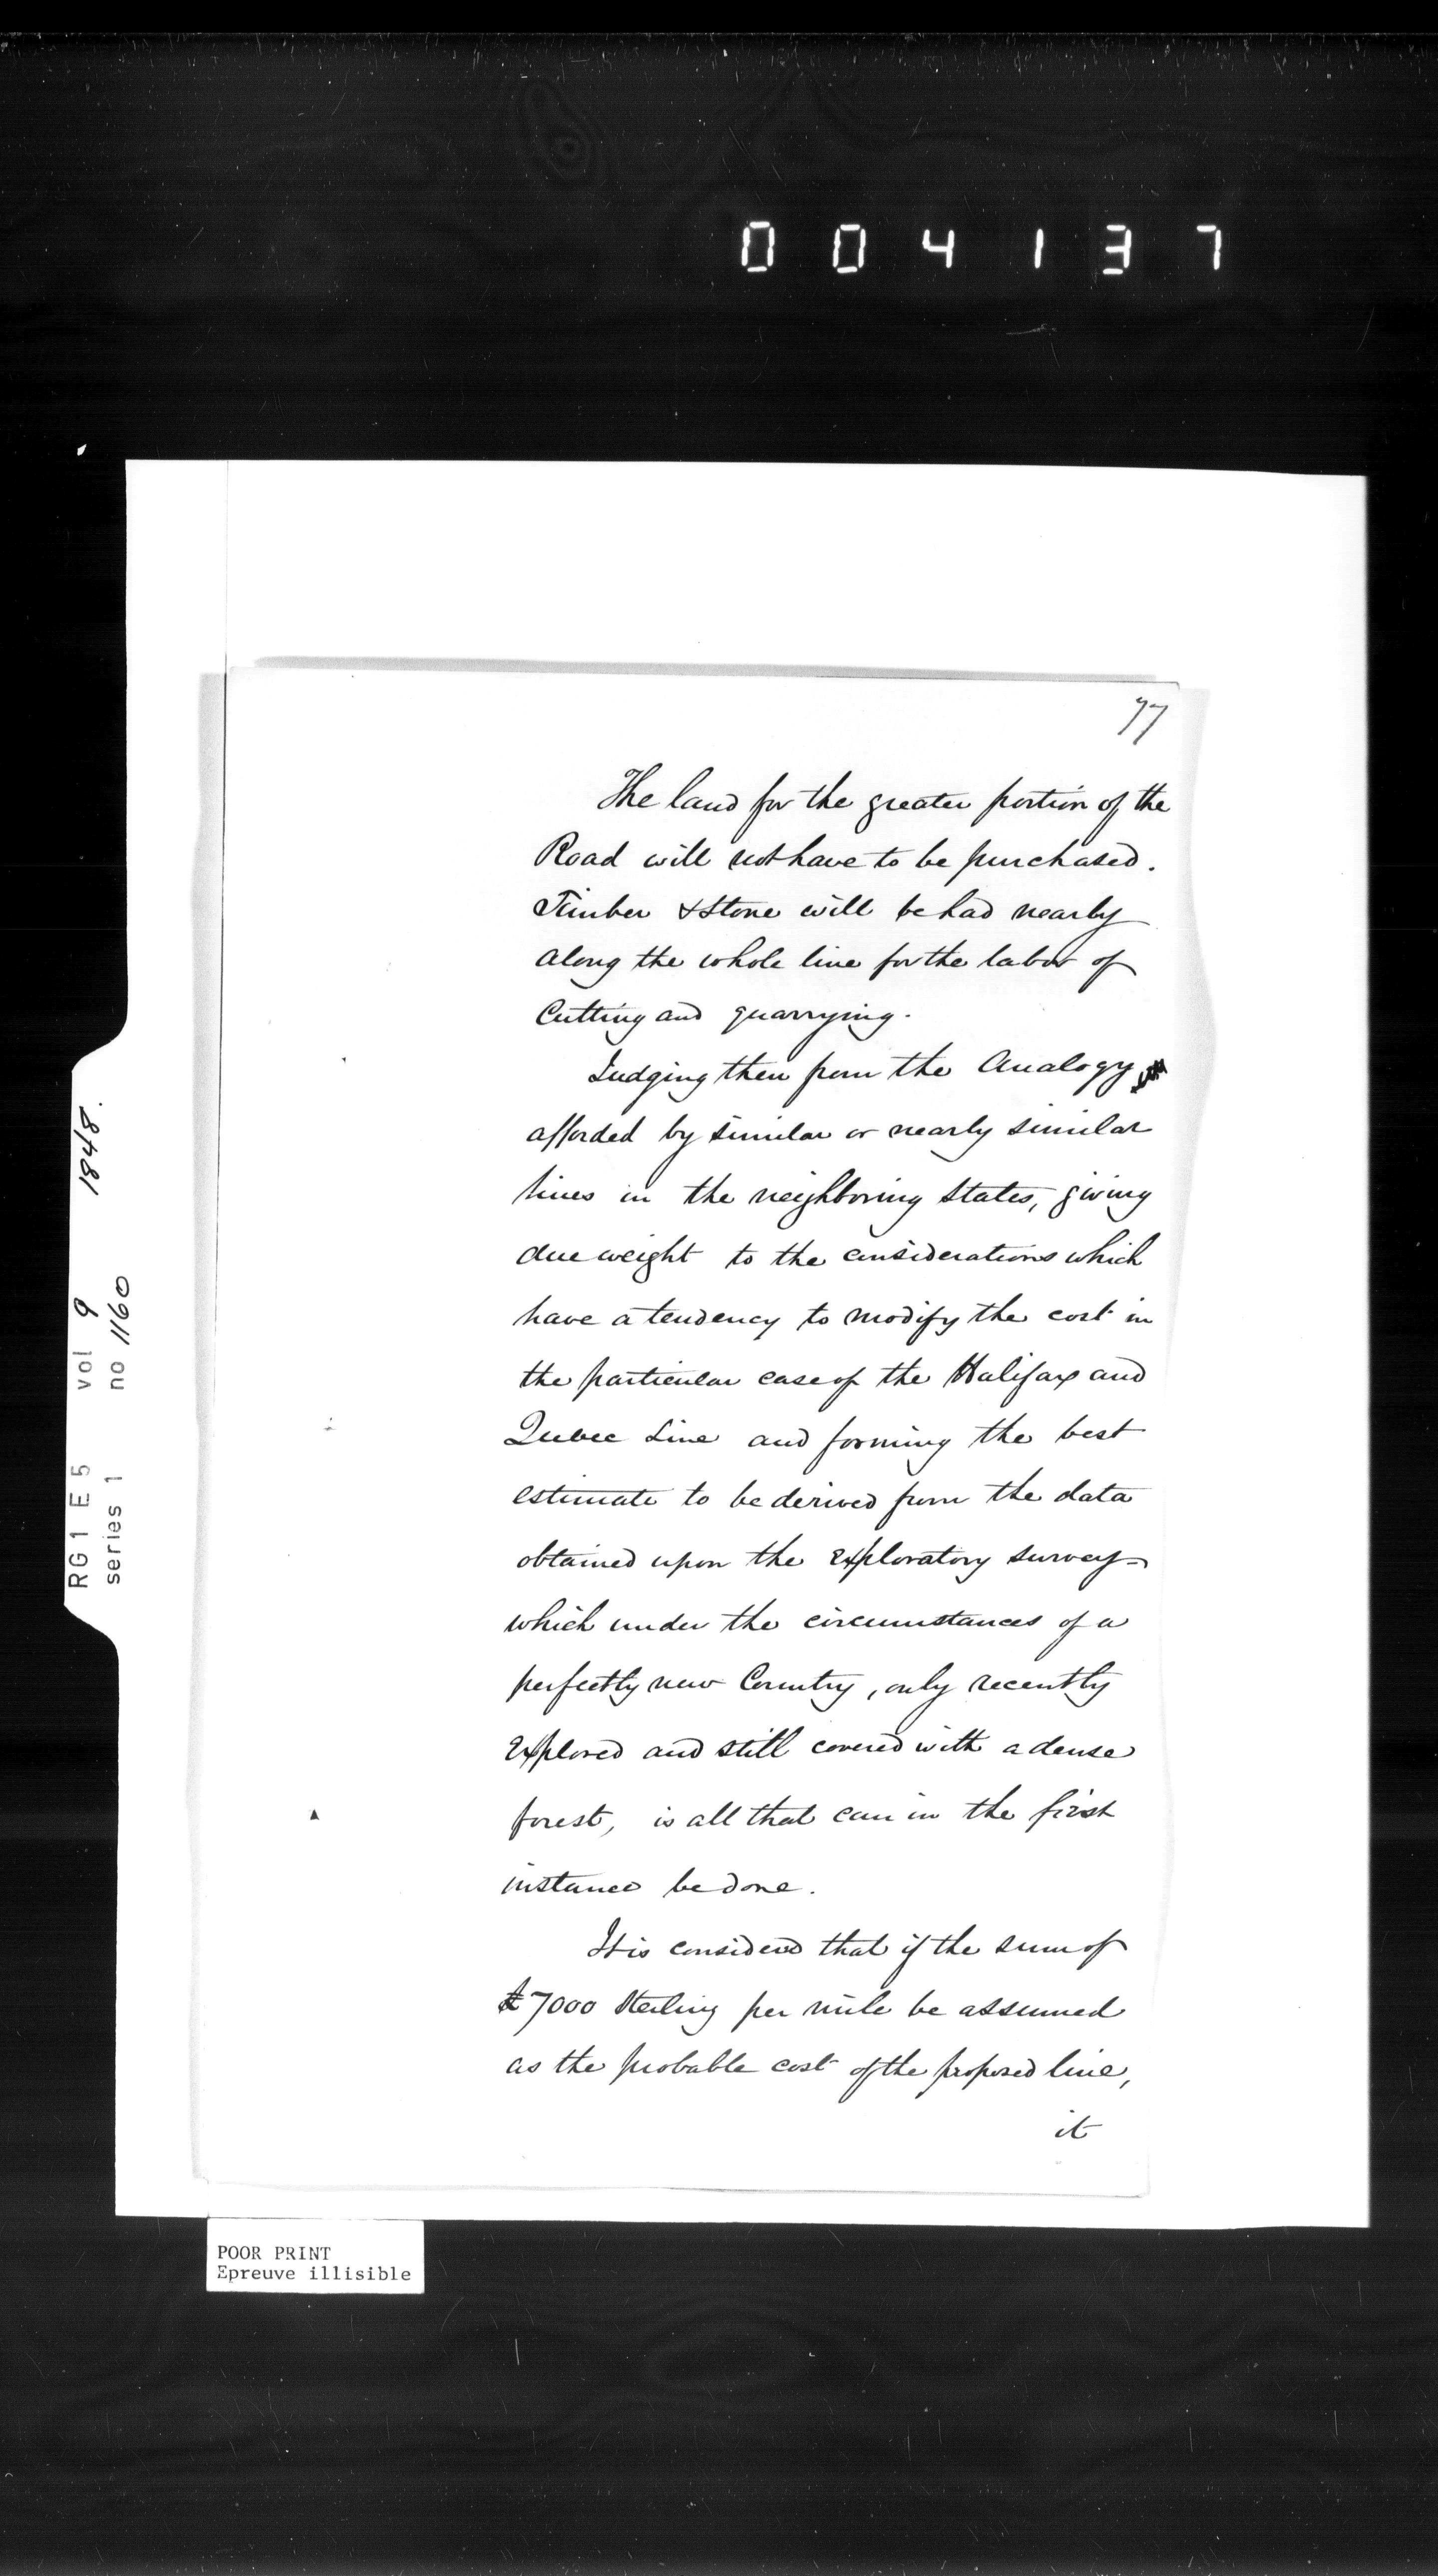 004137
77
The land for the greater portion of the
Road will not have to be purchased.
Timber & Stone will be had nearly
along the whole line for the labor of
Cutting and quarrying.
Judging then from the Analogy
afforded by similar or nearly similar
lines in the neighboring States, giving
due weight to the considerations which
have a tendency to modify the cost in
the particular case of the Halifax and
Quebec Line and forming the best
estimate to be derived from the data
obtained upon the exploratory survey-
which under the circumstances of a
perfectly new Country, only recently
explored and still covered with a dense
forest, is all that can in the first
instance be done.
It is considered that if the sum of
£7000 Sterling per mile be assumed
as the probable cost of the proposed line,
it
RG 1 E 5 vol 9 1848.
series 1 no 1160
POOR PRINT
Epreuve illisible